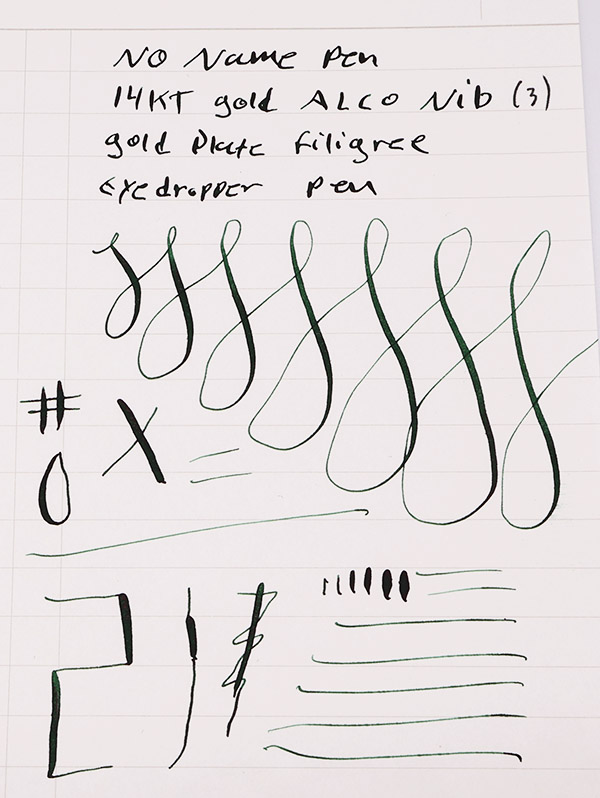 NO Name Pen
14KT gold ALCO Nib (3)
gold Plate filigree
eyedropper pen
#
X
0